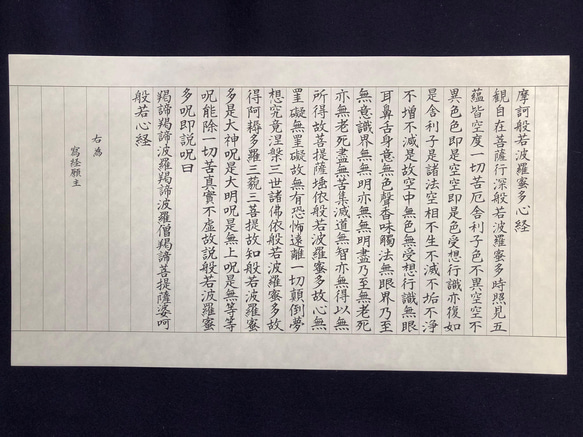 摩訶般若波羅蜜多心経
觀自在菩薩行深般若波羅蜜多時照見五
蘊皆空度一切苦厄舍利子色不異空空不
異色色即是空空即是色受想行識亦復如
是舍利子是諸法空相不生不滅不垢不淨
不増不減是故空中無色無受想行識無眼
耳鼻舌身意無色聲香味觸法無眼界乃至
無意識界無無明亦無無明盡乃至無老死
亦無老死盡無苦集滅道無智亦無得以無
所得故菩提薩埵依般若波羅蜜多故心無
罣礙無罣礙故無有恐怖遠離一切顛倒夢
想究竟涅槃三世諸佛依般若波羅蜜多故
得阿耨多羅三藐三菩提故知般若波羅蜜
多是大神呪是大明呪是無上呪是無等等
呪能除一切苦真實不虚故説般若波羅蜜
多呪即説呪曰
羯諦羯諦波羅羯諦波羅僧羯諦菩提薩婆呵
般若心経
右為
寫経願主